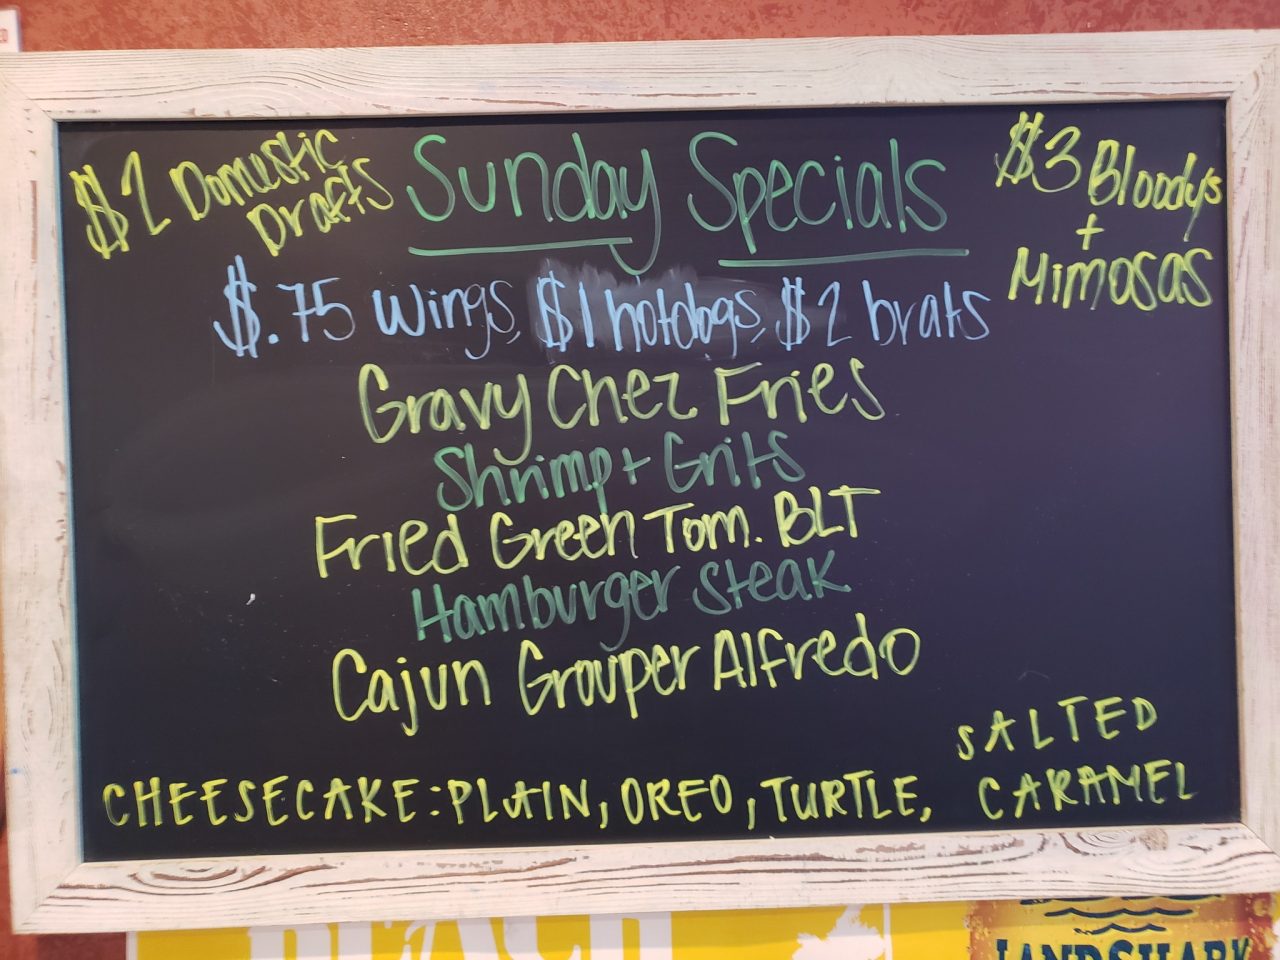 $2 Domestic
Drafts
Sunday Specials
$3 Bloodys
+
Mimosas
$.75 Wings, $1 hotdogs, $2 brats
Gravy Chez Fries
Shrimp + Grits
Fried Green Tom. BLT
Hamburger Steak
Cajun Grouper Alfredo
CHEESECAKE: PLAIN, OREO, TURTLE, SALTED
CARAMEL
BEACH
LANDSHARK